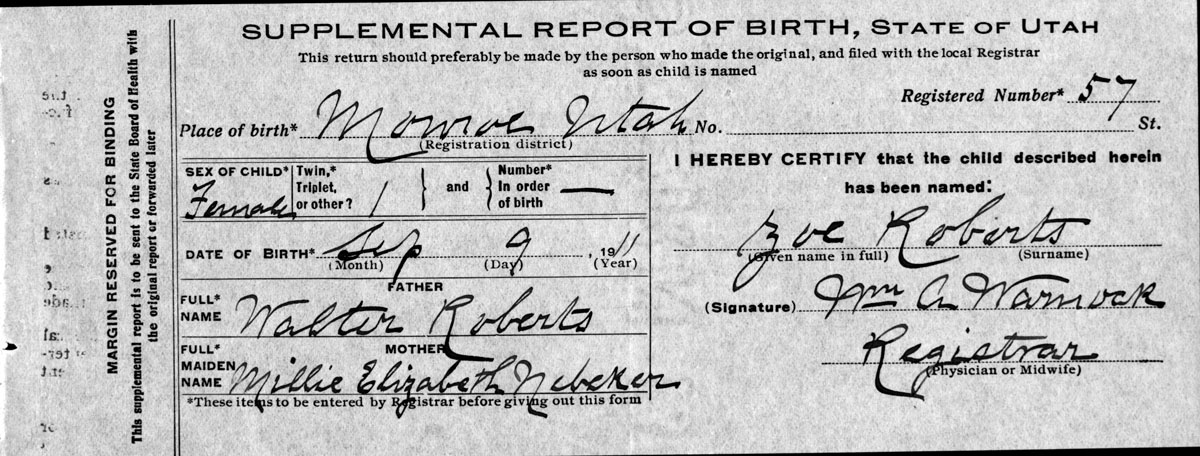 SUPPLEMENTAL REPORT OF BIRTH, STATE OF UTAH
This return should preferably be made by the person who made the original, and filed with the local Registrar
as soon as child is named
Registered Number* 57
Place of birth* Monroe Utah No. St.
(Registration district)
MARGIN RESERVED FOR BINDING
This supplemental report is to be sent to the State Board of Health with
the original report or forwarded later
SEX OF CHILD* Female
Twin,*
Triplet,
or other? 1
and
Number*
In order
of birth —
DATE OF BIRTH* Sep 9, 1911
(Month) (Day) (Year)
FATHER
FULL*
NAME Walter Roberts
MOTHER
FULL*
MAIDEN
NAME Millie Elizabeth Nebeker
*These items to be entered by Registrar before giving out this form
I HEREBY CERTIFY that the child described herein
has been named:
Zoe Roberts
(Given name in full) (Surname)
(Signature) Wm A Warnock
Registrar
(Physician or Midwife)